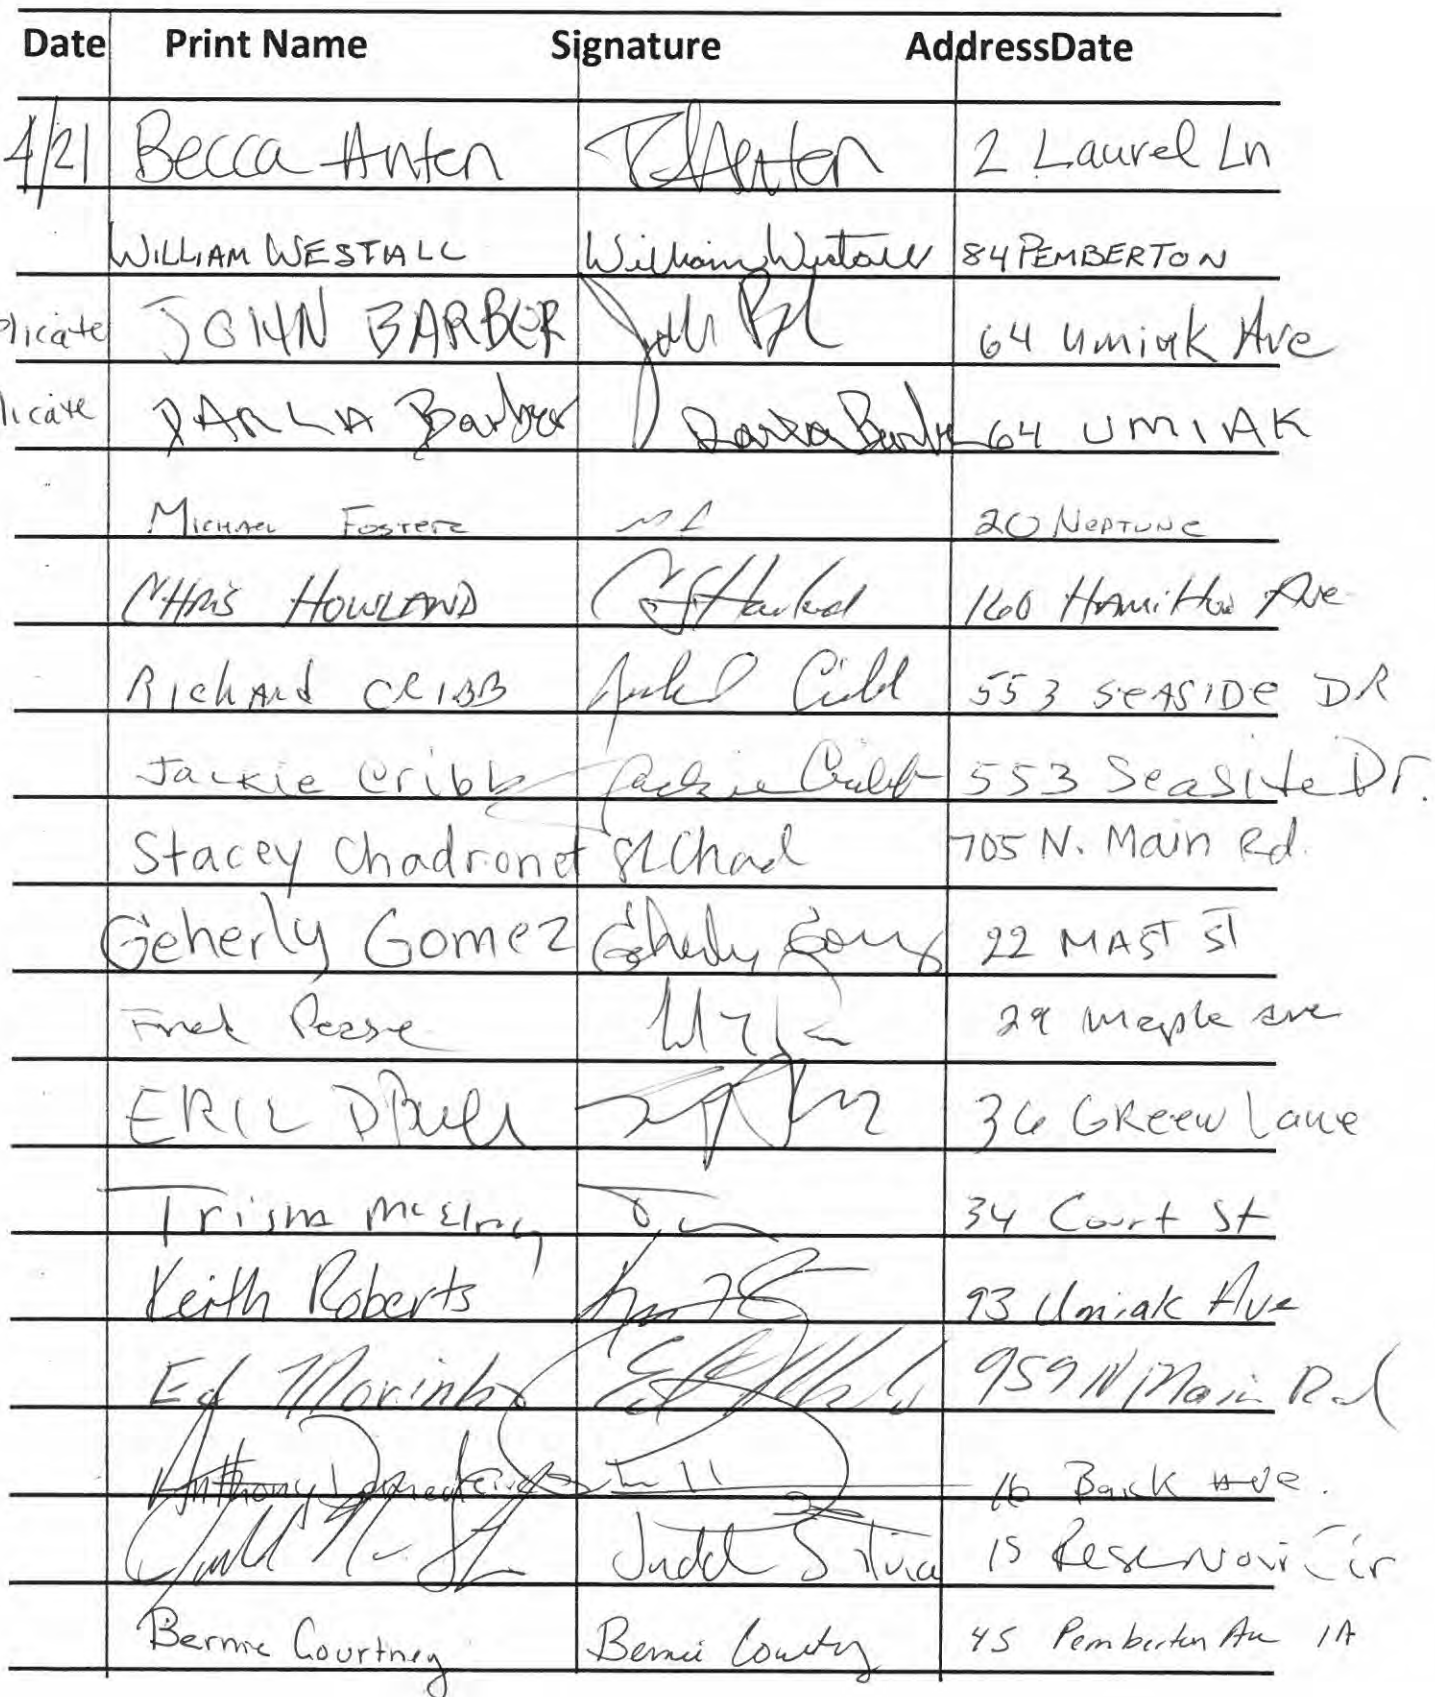 Date Print Name Signature AddressDate
4/21 Becca Anten 2 Laurel Ln
WILLIAM WESTALL William Westall 84 PEMBERTON
plicate JOHN BARBER 64 Umiak Ave
licate DARLA Barber Darla Barber 64 UMIAK
MICHAEL FOSTER 20 NEPTUNE
CHRIS HOWLAND 160 HAMILTON Ave
RichARd CRIBB 553 SEASIDE DR
Jackie Cribb Jackie Cribb 553 Seaside Dr.
Stacey Chadronet 705 N. Main Rd.
Geherly Gomez Geherly Gomez 22 MAST ST
Fred Pease 29 Maple Ave
ERIC 36 GReen Lane
34 Court St
Keith Roberts 93 Umiak Ave
Ed Marinho 959 N Main Rd
Anthony 16 Bark Ave.
Judd Silvia 15 Reservoir Cir
Bernie Courtney Bernie Courtney 45 Pemberton Av 1A